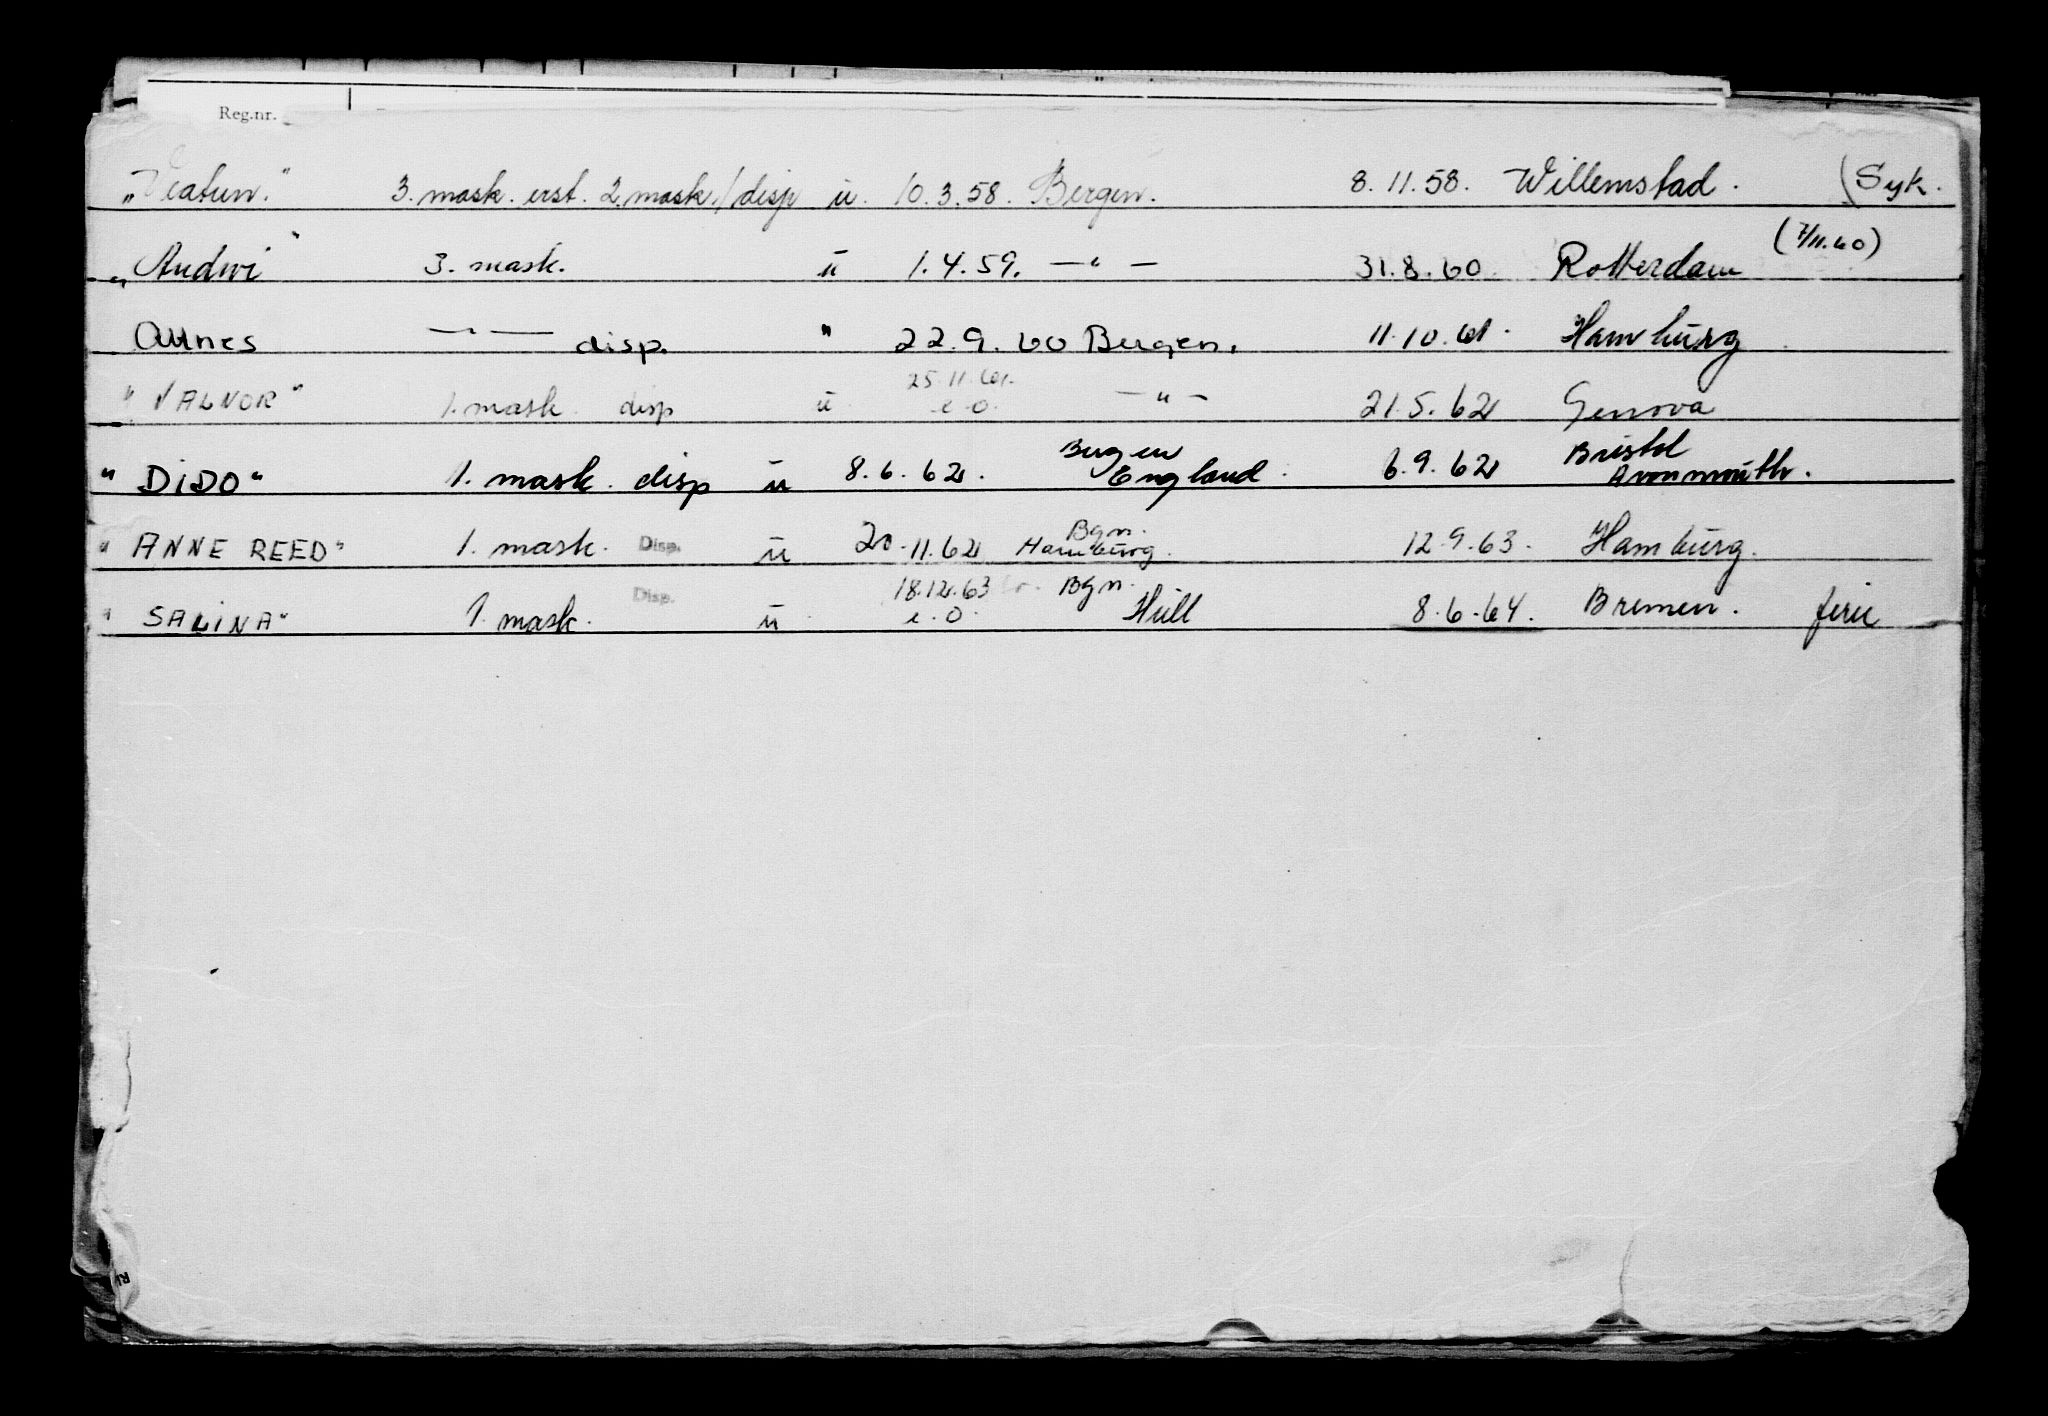 Reg.nr.
3. mask. erst. 2. mask./disp u. 10.3.58. Bergen. 8.11.58. Willemstad. (Syk.
(7/11.60)
„Audwi" 3. mask. u 1.4.59. — " — 31.8.60 Rotterdam
— " — disp. " 22.9.60 Bergen. 11.10.61. Hamburg
25.11.61.
"VALNOR" 1. mask. disp u e.o. — " — 21.5.62 Genova
Bergen Bristol
"DIDO" 1. mask. disp u 8.6.62. England. 6.9.62 Avonmouth.
Bgn.
"ANNE REED" 1. mask. Disp. u 20.11.62 Hamburg. 12.9.63. Hamburg.
Disp. 18.12.63 Bgn.
"SALINA" 1. mask. u e.o Hull 8.6.64. Bremen. ferie